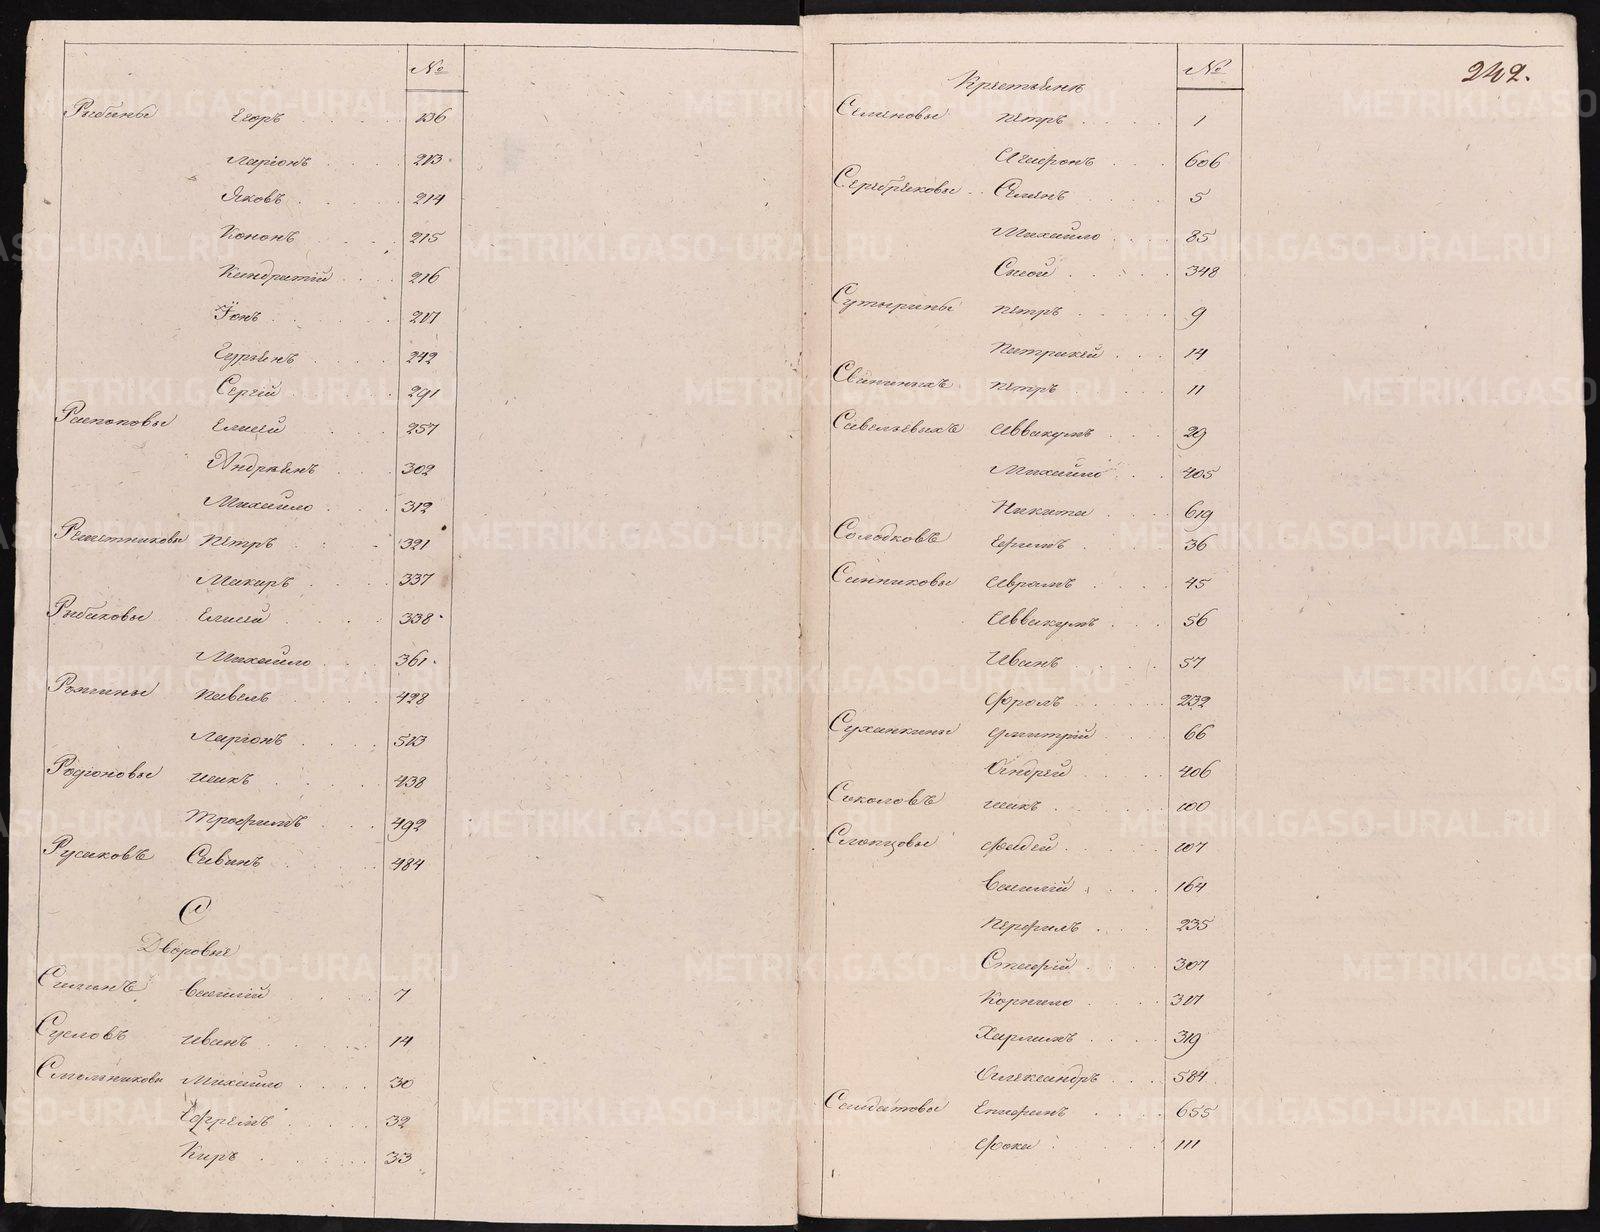 №
Рыбины Егоръ 136
Ларіонъ 213
Яковъ 214
Кононъ 215
Кондратій 216
Іонъ 217
Гурьянъ 242
Сергій 291
Распоповы Елисей 257
Андреянъ 302
Михайло 312
Решетниковы Петръ 321
Макаръ 337
Рыбаковы Елисей 338
Михайло 361
Рожины Павелъ 428
Ларіонъ 513
Родіоновы Исакъ 438
Трофимъ 492
Русаковъ Саванъ 484
С
Дворовые
Василій 7
Сусловъ Иванъ 14
Смольниковы Михайло 30
Ефремъ 32
Киръ 33
242.
Крестьяне №
Семеновы Петръ 1
Агафонъ 606
Серебряковы Семенъ 5
Михайло 85
Сысой 348
Сутырины Петръ 9
Патрикей 14
Свининыхъ Петръ 11
Савельевыхъ Аввакумъ 29
Михайло 405
Никита 619
Солодковъ Ефимъ 36
Санниковы Аврамъ 45
Аввакумъ 56
Иванъ 57
Фролъ 232
Суханкины Дмитрій 66
Андрей 406
Соколовъ Исакъ 100
Слепцовы Фадей 107
Василій 164
Перфилъ 235
Стафій 307
Корнило 317
Харлимъ 319
Александръ 584
Саидатовы Епифанъ 655
Фока 111
METRIKI.GASO-URAL.RU